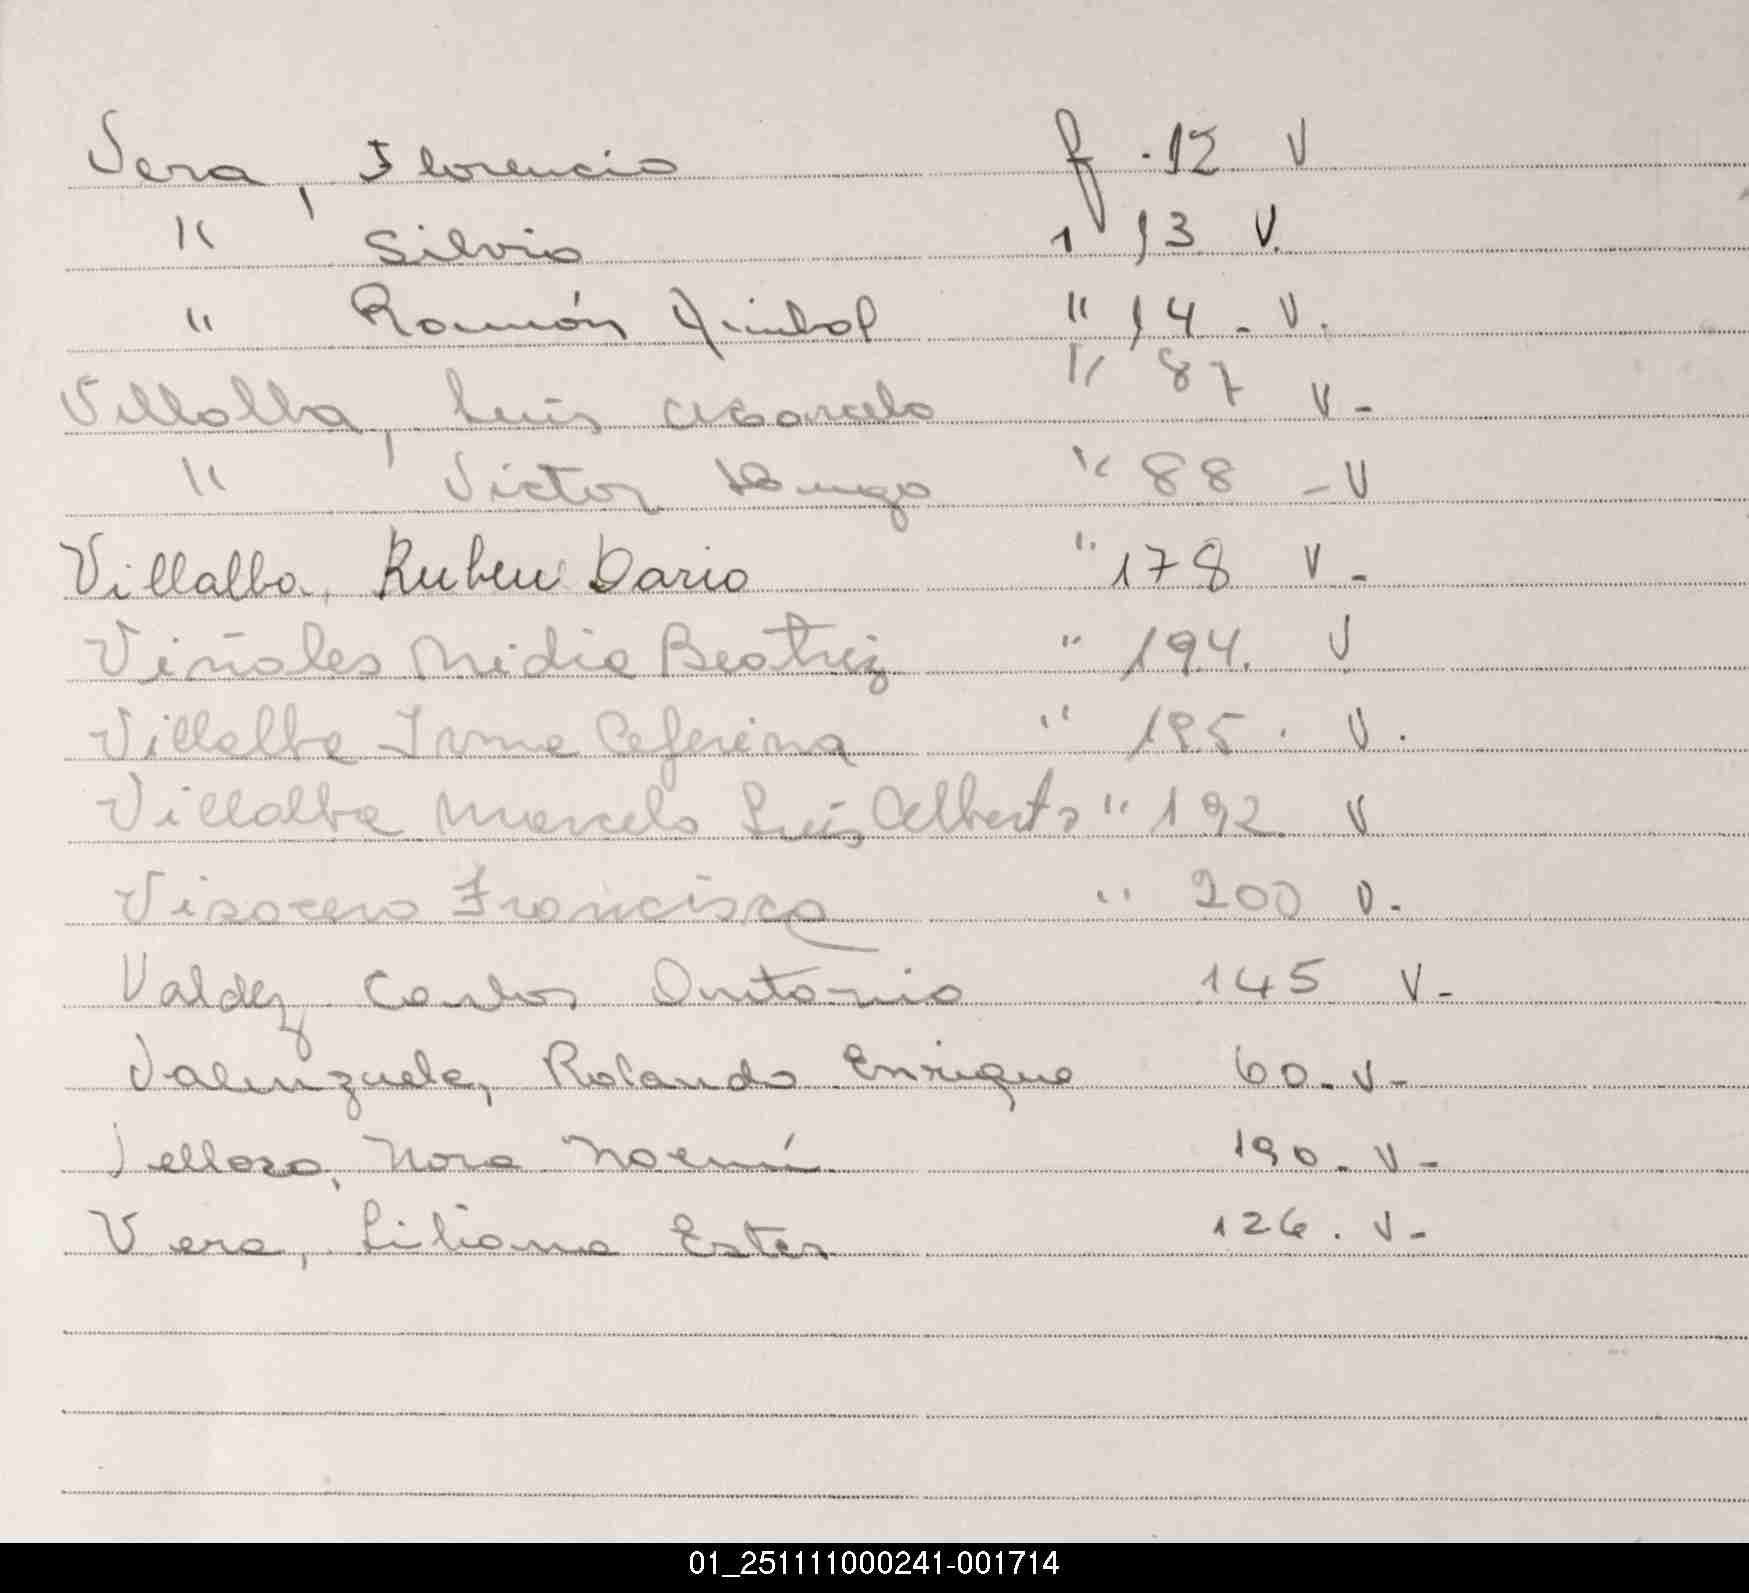 Vera, Florencio f. 12 V
" Silvio " 13 V.
" Ramón Anibal " 14. V.
Villalba, Luis Marcelo " 87 V-
" Victor Hugo " 88 - V
Villalba, Ruben Dario " 178 V-
Viñales Nidia Beatriz " 194. V
Villalba Irma Ceferina " 195. V.
Villalba Marcelo Luis Alberto " 192. V
Francisca " 200 V.
Valdez Carlos Antonio 145 V-
Valenzuela, Rolando Enrique 60. V-
Vellozo, Nora Noemí 190. V-
Vera, Liliana Ester 126. V-
01_251111000241-001714